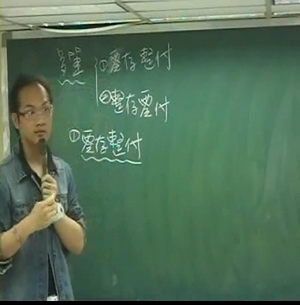 多筆
①零存整付
②整存零付
①零存整付